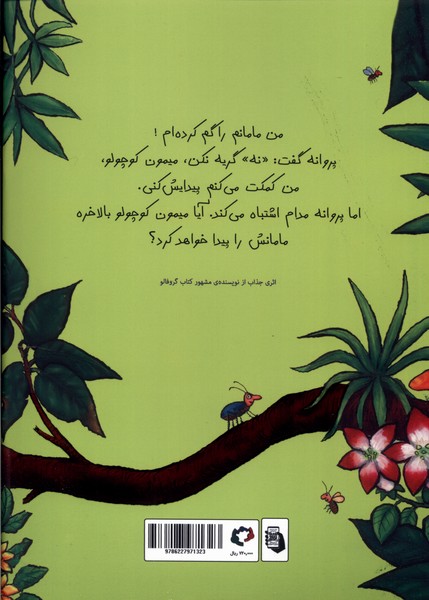 من مامانم را گم کرده‌ام !
پروانه گفت: «نه» گریه نکن، میمون کوچولو،
من کمکت می‌کنم پیدایش کنی.
اما پروانه مدام اشتباه می‌کند. آیا میمون کوچولو بالاخره
مامانش را پیدا خواهد کرد؟
اثری جذاب از نویسنده‌ی مشهور کتاب گروفالو
۷۲۰,۰۰۰ ریال
9786227971323